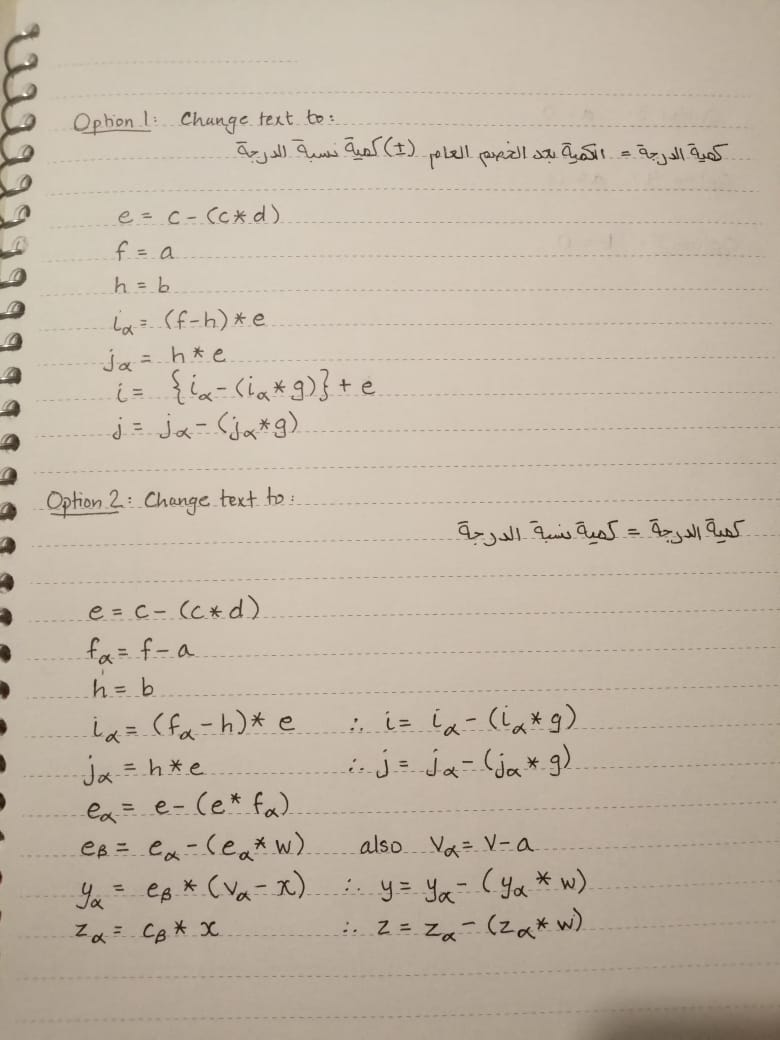 Option 1: Change text to:
كمية الدرجة = الكمية بعد الخصم العام (±) كمية نسبة الدرجة
e = c - (c * d)
f = a
h = b
iα = (f-h) * e
jα = h * e
i = {iα - (iα * g)} + e
j = jα - (jα * g)
Option 2: Change text to:
كمية الدرجة = كمية نسبة الدرجة
e = c - (c * d)
fα = f - a
h = b
iα = (fα - h) * e ∴ i = iα - (iα * g)
jα = h * e ∴ j = jα - (jα * g)
eα = e - (e * fα)
eβ = eα - (eα * w) also vα = v - a
yα = eβ * (vα - x) ∴ y = yα - (yα * w)
zα = cβ * x ∴ z = zα - (zα * w)